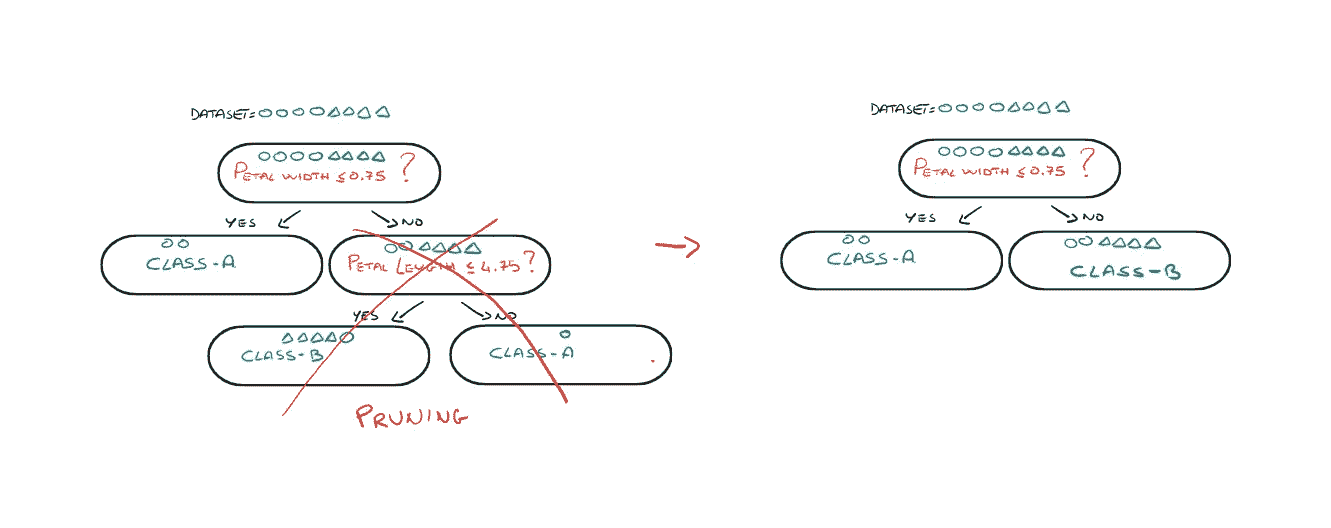 DATASET=
PETAL WIDTH ≤ 0.75 ?
YES
NO
CLASS-A
PETAL LENGTH ≤ 4.75?
YES
NO
CLASS-B
CLASS-A
PRUNING
DATASET=
PETAL WIDTH ≤ 0.75 ?
YES
NO
CLASS-A
CLASS-B